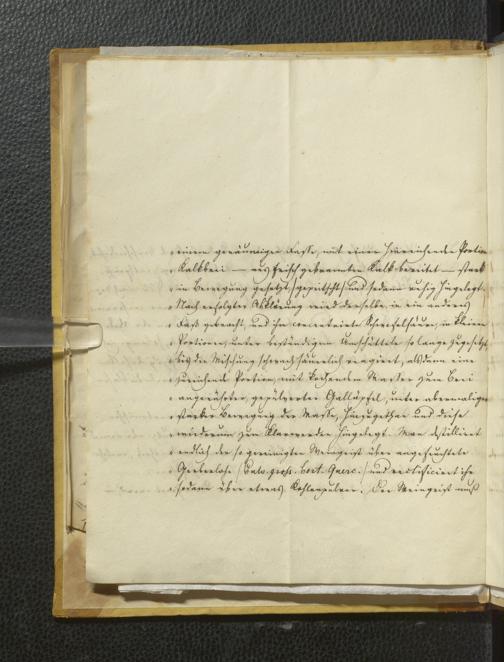 einem geräumigen Fasse, mit einer hinreichenden Portion
Kalkbrei — aus frisch gebranntem Kalk bereitet — stark
in Bewegung gesetzt, (gepeitscht) und sodann ruhig hingelegt.
Nach erfolgter Abklärung wird derselbe in ein anderes
Faß gebracht, und ihm concentrirte Schwefelsäure, in kleinen
Portionen, unter beständigem Umschütteln so lange zugesetzt
bis die Mischung schwach säuerlich reagiert, alsdann eine
hinreichende Portion, mit kochendem Wasser zum Brei
angerührter, gepülverter Galläpfel, unter abermaliger
starker Bewegung der Masse, hinzugethan und diese
wiederum zum Klarwerden hingelegt. Man destillirt
endlich den so gereinigten Weingeist über angefeuchtete
Gerberlohe (pulv. gross. cort. Querc.) und rectificiert ihn
sodann über etwas Kohlenpulver. Der Weingeist muß